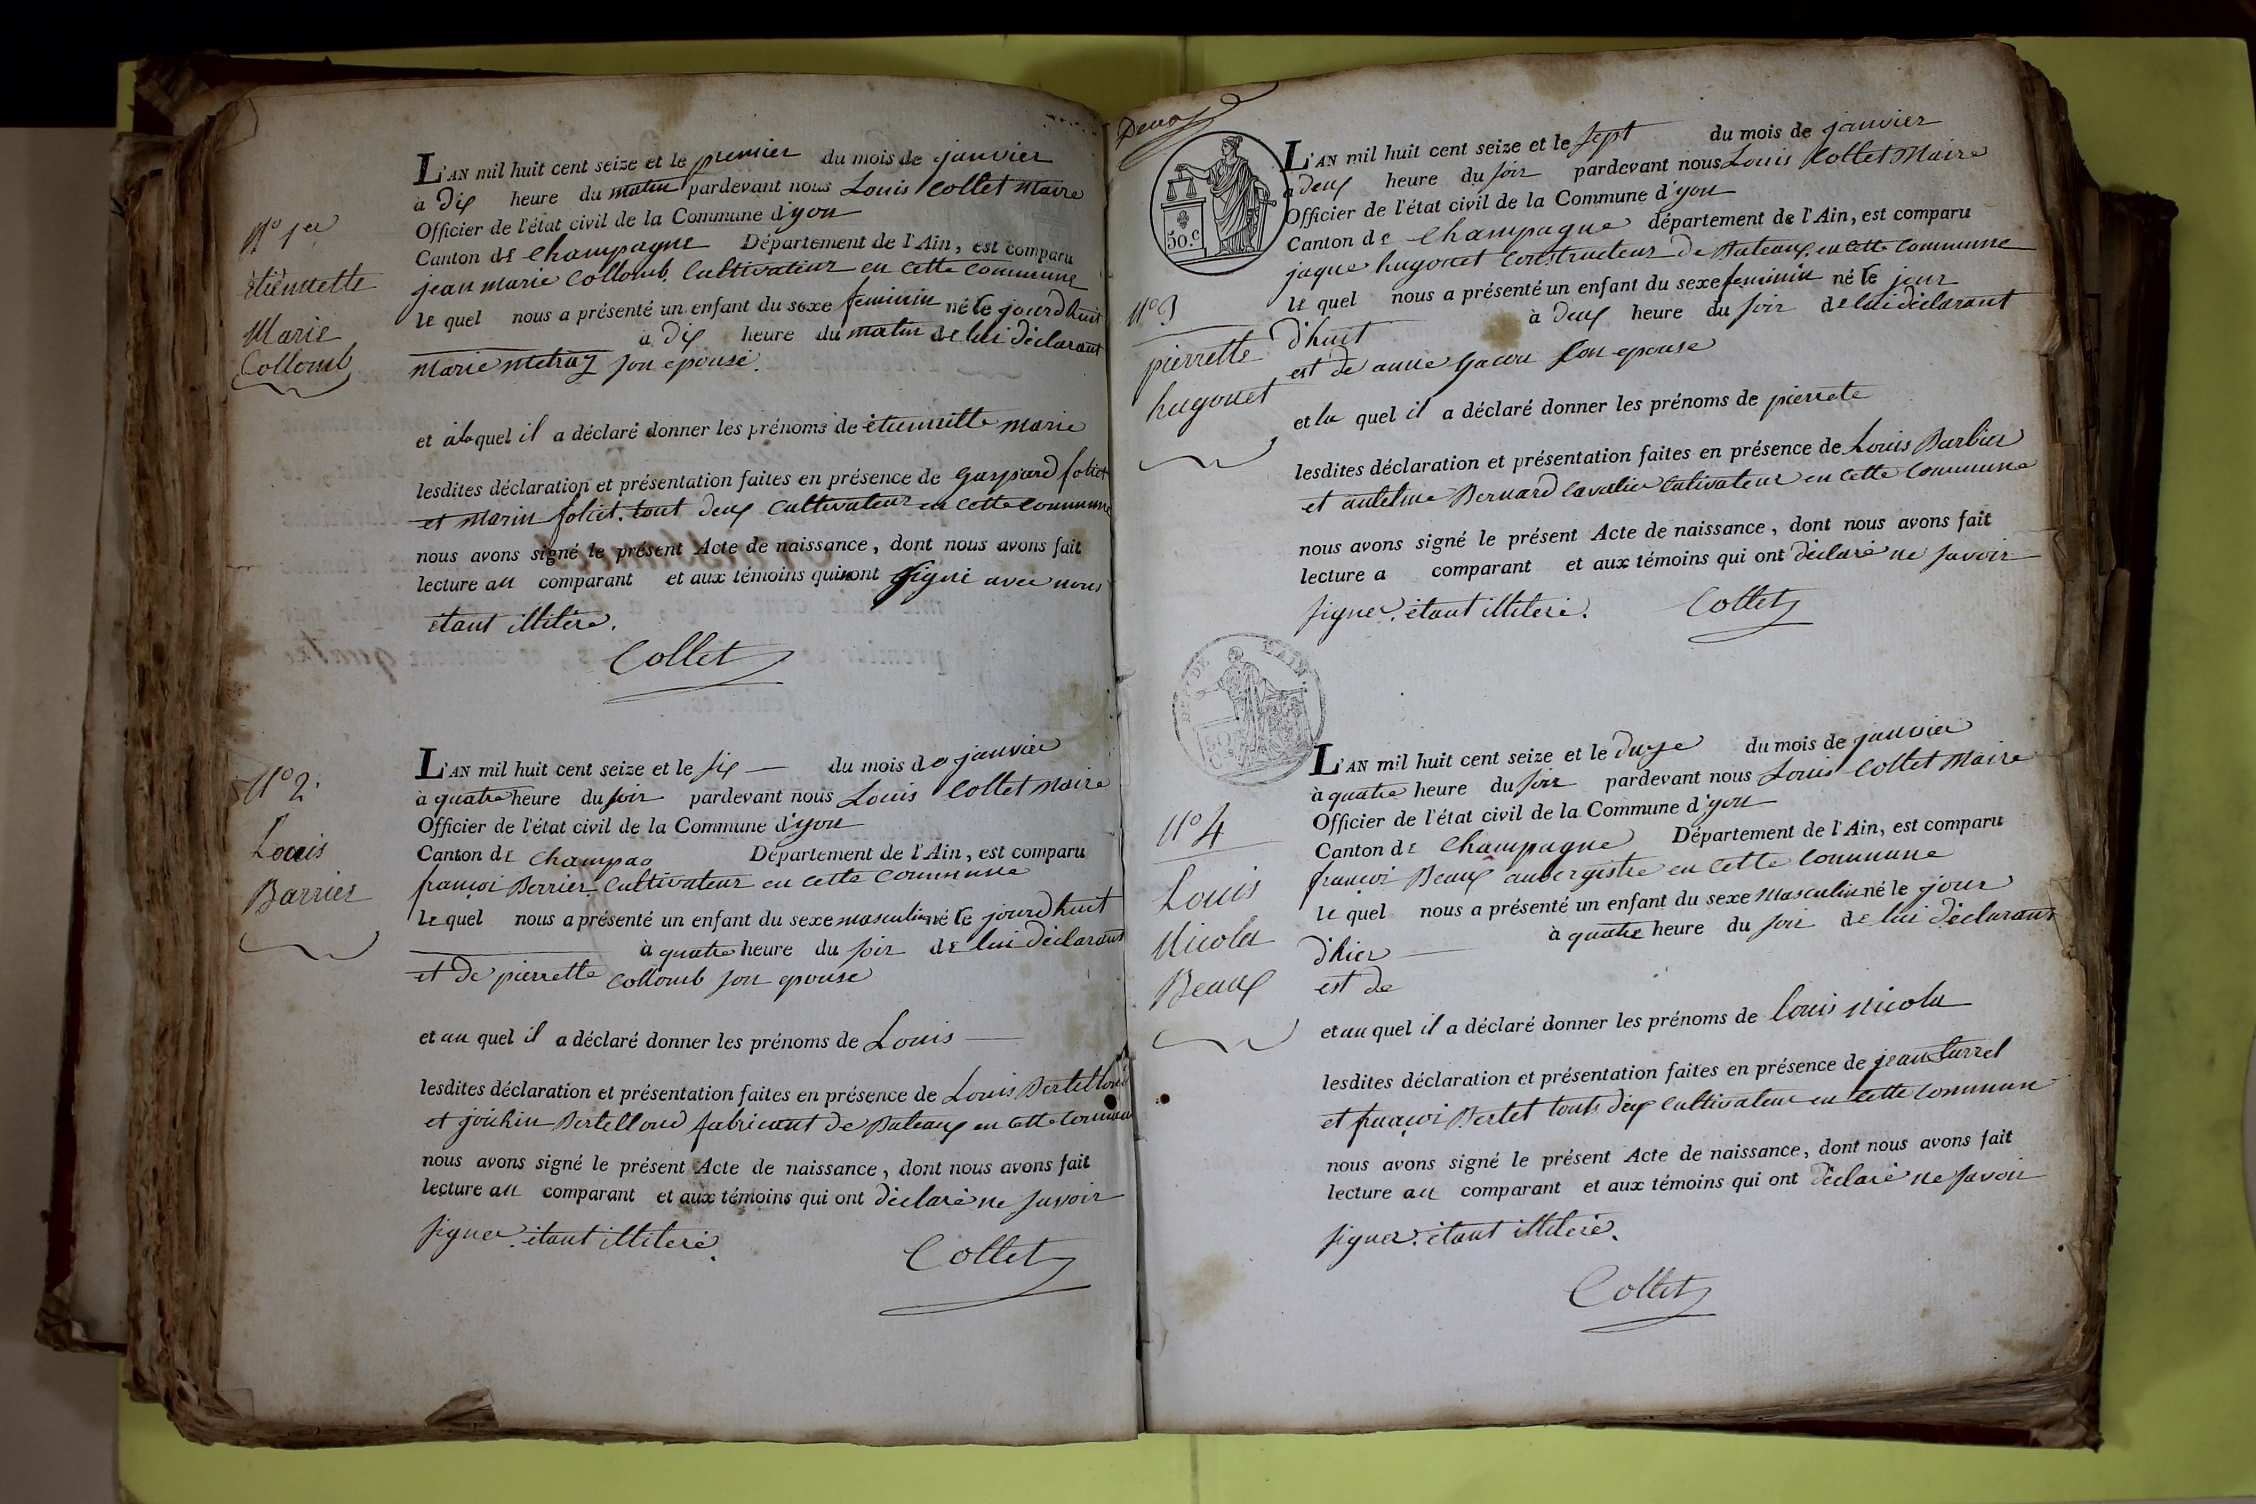 N.o 1.er
étiennette
Marie
Collomb
L'AN mil huit cent seize et le premier du mois de janvier
à dix heure du matin pardevant nous Louis Collet Maire
Officier de l'état civil de la Commune d'yon
Canton de Champagne Département de l'Ain, est comparu
jean marie Collomb. Cultivateur en cette commune
le quel nous a présenté un enfant du sexe feminin né le jourdhuit
à dix heure du matin de lui déclarant
Marie Metraz son epouse.
et à la quel il a déclaré donner les prénoms de étiennette marie
lesdites déclaration et présentation faites en présence de gaspard foliet
et Marin foliet. tout deux Cultivateur en cette commune
nous avons signé le présent Acte de naissance, dont nous avons fait
lecture au comparant et aux témoins qui n'ont signé avec nous
étant illitéré.
Collet
N.o 2.
Louis
Barrier
L'AN mil huit cent seize et le six du mois de janvier
à quatre heure du soir pardevant nous Louis Collet Maire
Officier de l'état civil de la Commune d'yon
Canton de Champag Département de l'Ain, est comparu
françoi Berrier Cultivateur en cette commune
le quel nous a présenté un enfant du sexe masculin né le jourdhuit
à quatre heure du soir de lui déclarant
et de pierrette Collomb son epouse
et au quel il a déclaré donner les prénoms de Louis
lesdites déclaration et présentation faites en présence de Louis Bertelloud
et joichin Bertelloud fabricant de Bateaux en cette commune
nous avons signé le présent Acte de naissance, dont nous avons fait
lecture au comparant et aux témoins qui ont déclaré ne savoir
signer. étant illitéré.
Collet
50.c
N.o 3
pierrette
hugonet
L'AN mil huit cent seize et le sept du mois de janvier
à deux heure du soir pardevant nous Louis Collet Maire
Officier de l'état civil de la Commune d'yon
Canton de Champagne département de l'Ain, est comparu
jaque hugonet Constructeur de Bateaux en cette commune
le quel nous a présenté un enfant du sexe feminin né le jour
d'huit à deux heure du soir de lui déclarant
est de anne gacon son epouse
et la quel il a déclaré donner les prénoms de pierrete
lesdites déclaration et présentation faites en présence de Louis Barbier
et antelme Bernard Cavalie Cultivateur en cette commune
nous avons signé le présent Acte de naissance, dont nous avons fait
lecture a comparant et aux témoins qui ont déclaré ne savoir
signer. étant illiteré.
Collet
N.o 4
Louis
Nicola
Beaux
L'AN mil huit cent seize et le duze du mois de janvier
à quatre heure du soir pardevant nous Louis Collet Maire
Officier de l'état civil de la Commune d'yon
Canton de Champagne Département de l'Ain, est comparu
françoi Beaux aubergistre en cette commune
le quel nous a présenté un enfant du sexe Masculin né le jour
d'hier à quatre heure du soir de lui déclarant
est de
et au quel il a déclaré donner les prénoms de louis Nicola
lesdites déclaration et présentation faites en présence de jean turrel
et françoi Bertet touts deux Cultivateur en cette commun
nous avons signé le présent Acte de naissance, dont nous avons fait
lecture au comparant et aux témoins qui ont déclaré ne savoir
signer. étant illiteré.
Collet